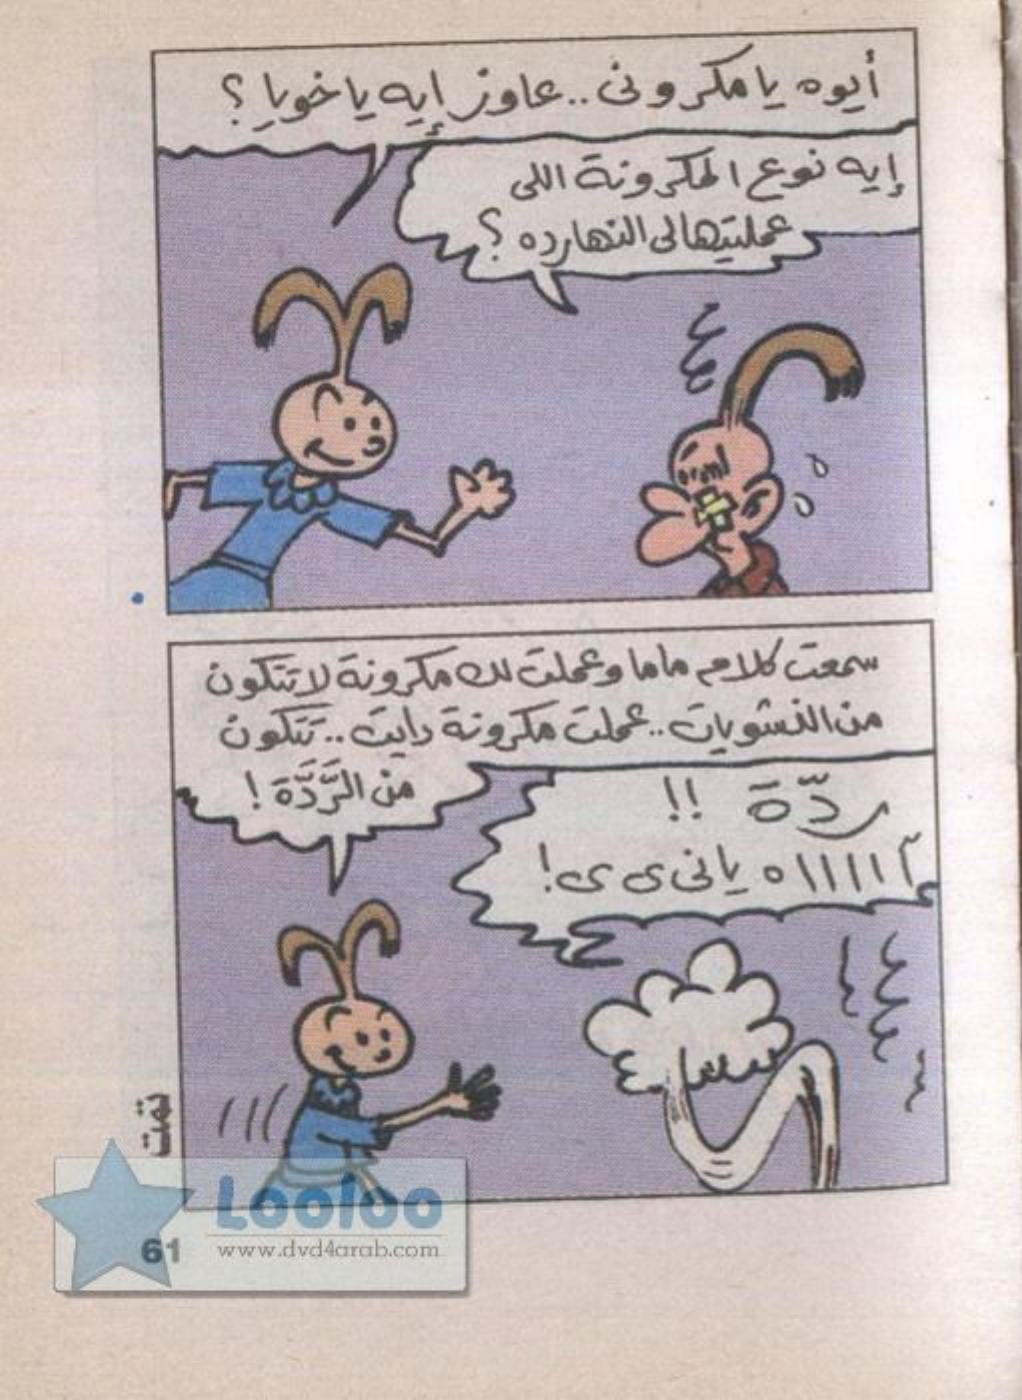 أيوه يا مكرونى.. عاوز إيه يا خويا ؟
إيه نوع المكرونة اللى
عملتيهالى النهارده ؟
سمعت كلام ماما وعملت لك مكرونة لا تتكون
من النشويات.. عملت مكرونة دايت.. تتكون
من الرَّدَّة !
ردّة !!
آااااااه يانى ى ى !
تمت
Looloo
www.dvd4arab.com
61